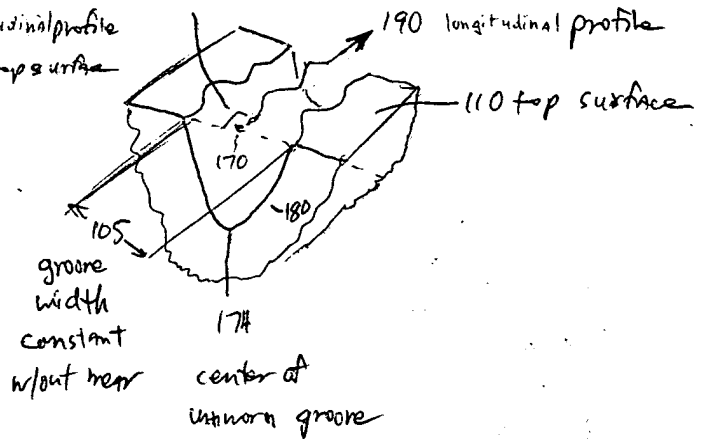 udinal profile
190 longitudinal profile
op surface
110 top surface
170
180
105
groove
width
constant
w/out wear
174
center of
unworn groove